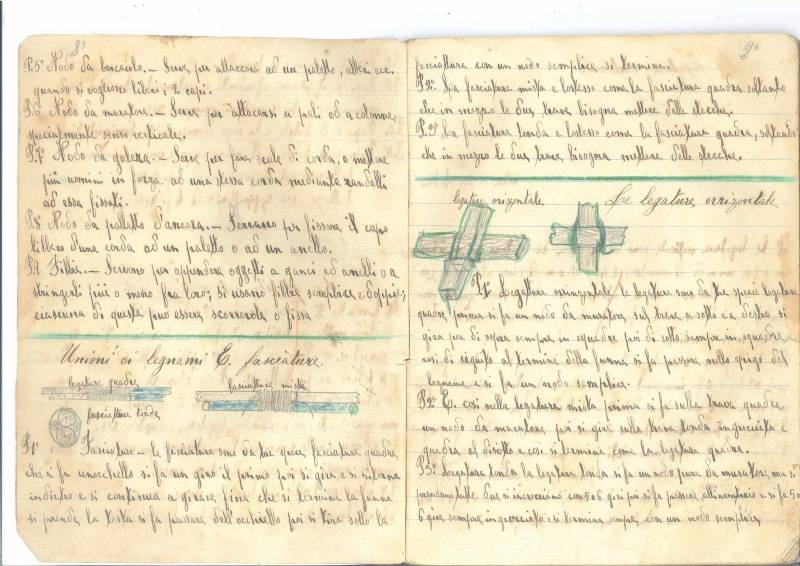 8º
P.5º Nodo da barcaiolo. — Serve per attaccarsi ad un paletto, alberi ecc.
quando si vogliono liberi i 2 capi.
P.6º Nodo da muratore. — Serve per attaccarsi a pali od a colonne,
specialmente senso verticale.
P.7º Nodo da galera. — Serve per fare scale di corda, o mettere
più uomini in forza ad una stessa corda mediante randelli
ad essa fissati.
P.8º Nodo da palletto d'ancora. — Servono per fissare il capo
libbero d'una corda ad un paletto o ad un anello.
P.9 Fibbie. — Servono per appendere oggetti a ganci ed anelli o a
stringerli più o meno fra loro; si usano fibbie semplici e doppie;
ciascuna di queste può essere scorrevola o fissa
Unioni di legnami E. fasciature.
legature quadre
fasciattura mista
fasciatura tonda
P.1º Fasciature — le fasciature sono da tre specie fasciature quadre,
che si fa unocchello si fa un giro il primo poi si gira e si ritorna
indietro e si continua a girare fina che si termine la funna
si prende la testa si fa passare dell'occhiello poi si tira sotto la
9º
fasciattura con un nodo semplice si termine.
P.2º La fasciatura mista e lostesso come la fasciatura quadra soltanto
che in mezzo le due trave bisogna mettere delle stecche.
P.3º La fasciatura tonda e lostesso come la fasciattura quadra, soltanto
che in mezzo le due trave bisogna mettere delle stecche.
legature orizontale
Le legature orrizontale
P.1º Legatture orrinzontale le legature sono da tre specie legature
quadre, prima si fa un nodo da muratore sul trave a sotto e a destra si
gira per di sopra sempre in squadre poi di sotto sempre in squadre,
così di seguito al termine della funna si fa passare nello spigo del
legname e si fa un nodo semplice.
P.2º E. cosi nella legatura mista prima si fa sulla trave quadra
un nodo da muratore, poi si gire sulla trave tonda increciata e
quadra al disotto e cosi si termine come la legatura quadra.
P.3º Legatura tonda la legature tonda si fa un nodo pure da muratore ma si
due si incrociano con 5 o 6 giri poi si fa passare all'incontrario e si fa 5 o
6 gire sempre ingrociato e si termine sempre con un nodo semplice,